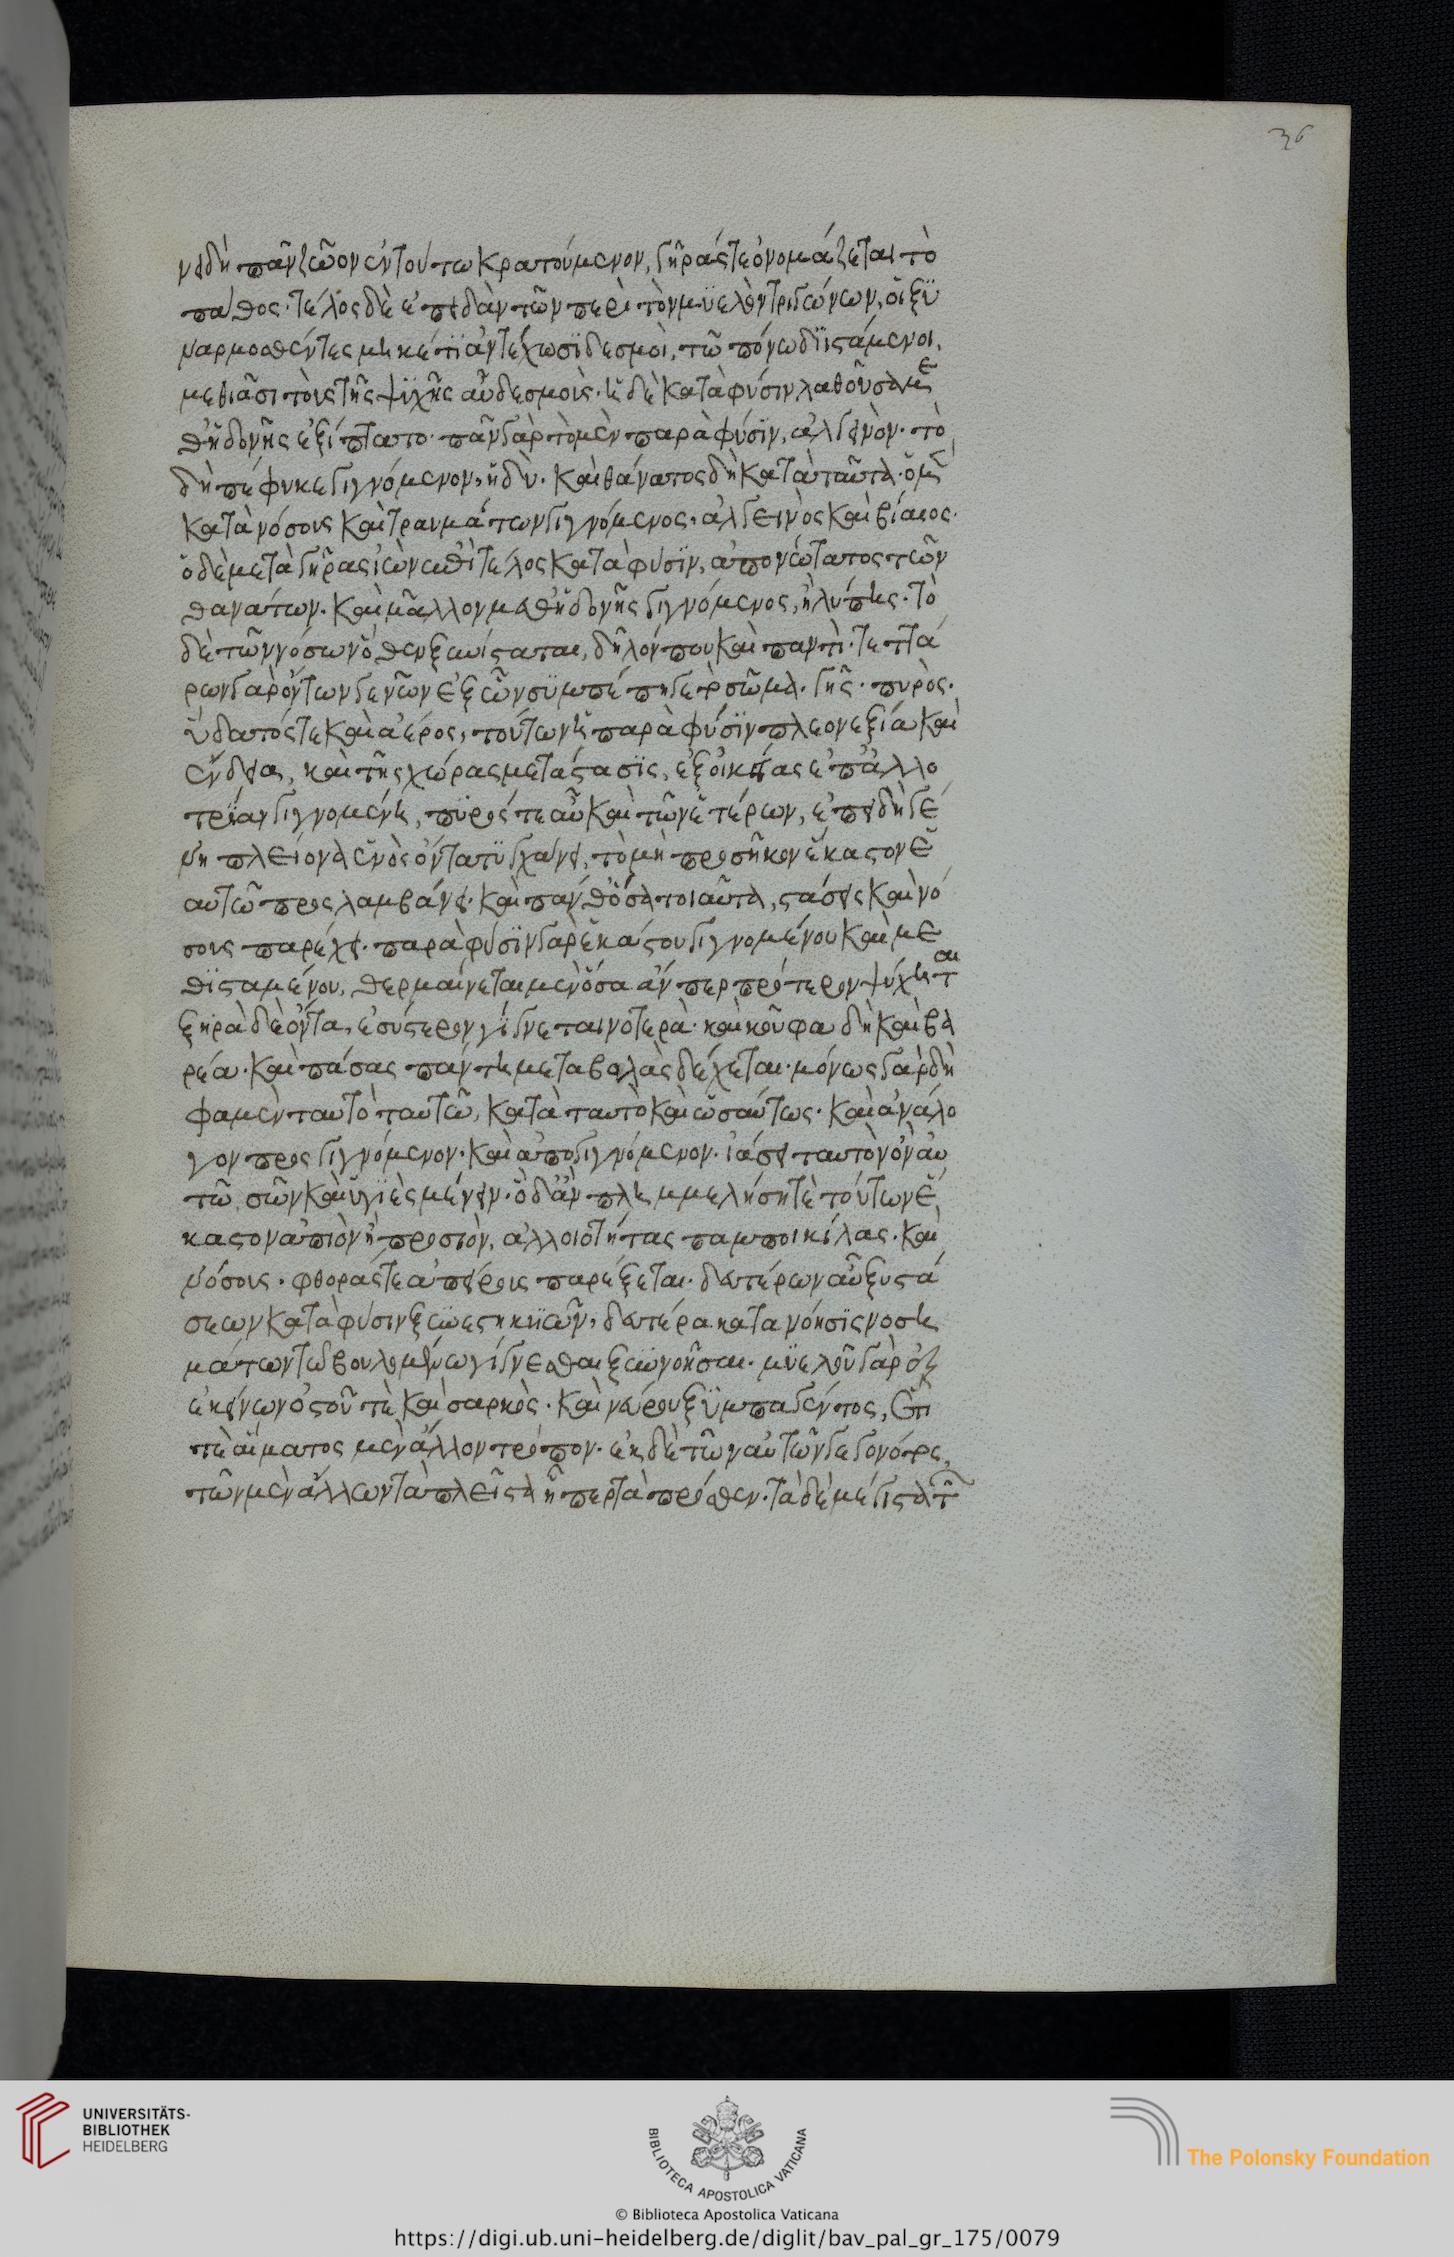 36
νει δὴ πᾶν ζῶον ἐν τούτω κρατούμενον, γῆράς τε ὀνομάζεται τὸ
πάθος. τέλος δὲ ἐπειδὰν τῶν περὶ τὸν μυελὸν τριγώνων, οἱ ξυ
ναρμοσθέντες μηκέτι ἀντέχωσι δεσμοὶ, τῶ πόνω διϊστάμενοι,
μεθιᾶσι τοὺς τῆς ψυχῆς αὖ δεσμοὺς. ἡ δὲ κατὰ φύσιν λαθοῦσα με
θ' ἡδονῆς ἐξέπτατο. πᾶν γὰρ τὸ μὲν παρὰ φύσιν, ἀλγεινὸν. τὸ
δὴ πέφυκε γιγνόμενον, ἡδὺ. καὶ θάνατος δὴ κατὰ ταῦτα. ὁ μὲν
κατὰ νόσους καὶ τραυμάτων γιγνόμενος, ἀλγεινὸς καὶ βίαιος.
ὁ δὲ μετὰ γῆρας ἰὼν ἐπὶ τέλος κατὰ φύσιν, ἀπονώτατος τῶν
θανάτων. καὶ μᾶλλον μεθ' ἡδονῆς γιγνόμενος, ἢ λύπης. τὸ
δὲ τῶν νόσων ὅθεν ξυνίσταται, δῆλόν που καὶ παντὶ. τεττά
ρων γὰρ ὄντων γενῶν ἐξ ὧν συμπέπηγε τὸ σῶμα. γῆς. πυρὸς.
ὕδατός τε καὶ ἀέρος, τούτων ἡ παρὰ φύσιν πλεονεξία καὶ
ἔνδεια, καὶ τῆς χώρας μετάστασις, ἐξ οἰκείας ἐπ' ἀλλο
τρίαν γιγνομένη, πυρός τε αὖ καὶ τῶν ἑτέρων, ἐπειδὴ γέ
νη πλείονα ἑνὸς ὄντα τυγχάνει, τὸ μὴ προσῆκον ἕκαστον ἑ
αυτῶ προσλαμβάνει. καὶ πάνθ' ὅσα τοιαῦτα, στάσεις καὶ νό
σους παρέχει. παρὰ φύσιν γὰρ ἑκάστου γιγνομένου καὶ με
θισταμένου, θερμαίνεται μὲν ὅσα ἄν περ πρότερον ψύχηται
ξηρὰ δὲ ὄντα, ἐσύστερον γίγνεται νοτερὰ. καὶ κοῦφα δὴ καὶ βα
ρέα. καὶ πάσας πάντη μεταβολὰς δέχεται. μόνως γὰρ δὴ
φαμὲν ταυτὸ ταυτῶ, κατὰ ταυτὸ καὶ ὡσαύτως. καὶ ἀνάλο
γον προσγιγνόμενον. καὶ ἀπογιγνόμενον. ἐάσει ταυτὸν ὂν αὑ
τῶ, σῶν καὶ ὑγιὲς μένειν. ὃ δ' ἂν πλημμελήσῃ τὲ τούτων ἕ
καστον ἀπιὸν ἢ προσιὸν, ἀλλοιότητας παμποικίλας. καὶ
νόσους. φθοράς τε ἀπείρους παρέξεται. δευτέρων αὖ ξυστά
σεων κατὰ φύσιν ξυνεστηκυιῶν, δευτέρα κατανόησις νοση
μάτων τῶ βουλομένω γίγνεσθαι ξυννοῆσαι. μυελοῦ γὰρ ἐξ
ἐκείνων ὀστοῦ τὲ καὶ σαρκὸς. καὶ νεύρου ξυμπαγέντος, ἔτι
τὲ αἵματος μὲν ἄλλον τρόπον. ἐκ δὲ τῶν αὐτῶν γεγονότος,
τῶν μὲν ἄλλων τὰ πλεῖστα ἧπερ τὰ πρόσθεν. τὰ δὲ μέγιστα τῶν
UNIVERSITÄTS-
BIBLIOTHEK
HEIDELBERG
BIBLIOTECA APOSTOLICA VATICANA
The Polonsky Foundation
© Biblioteca Apostolica Vaticana
https://digi.ub.uni-heidelberg.de/diglit/bav_pal_gr_175/0079